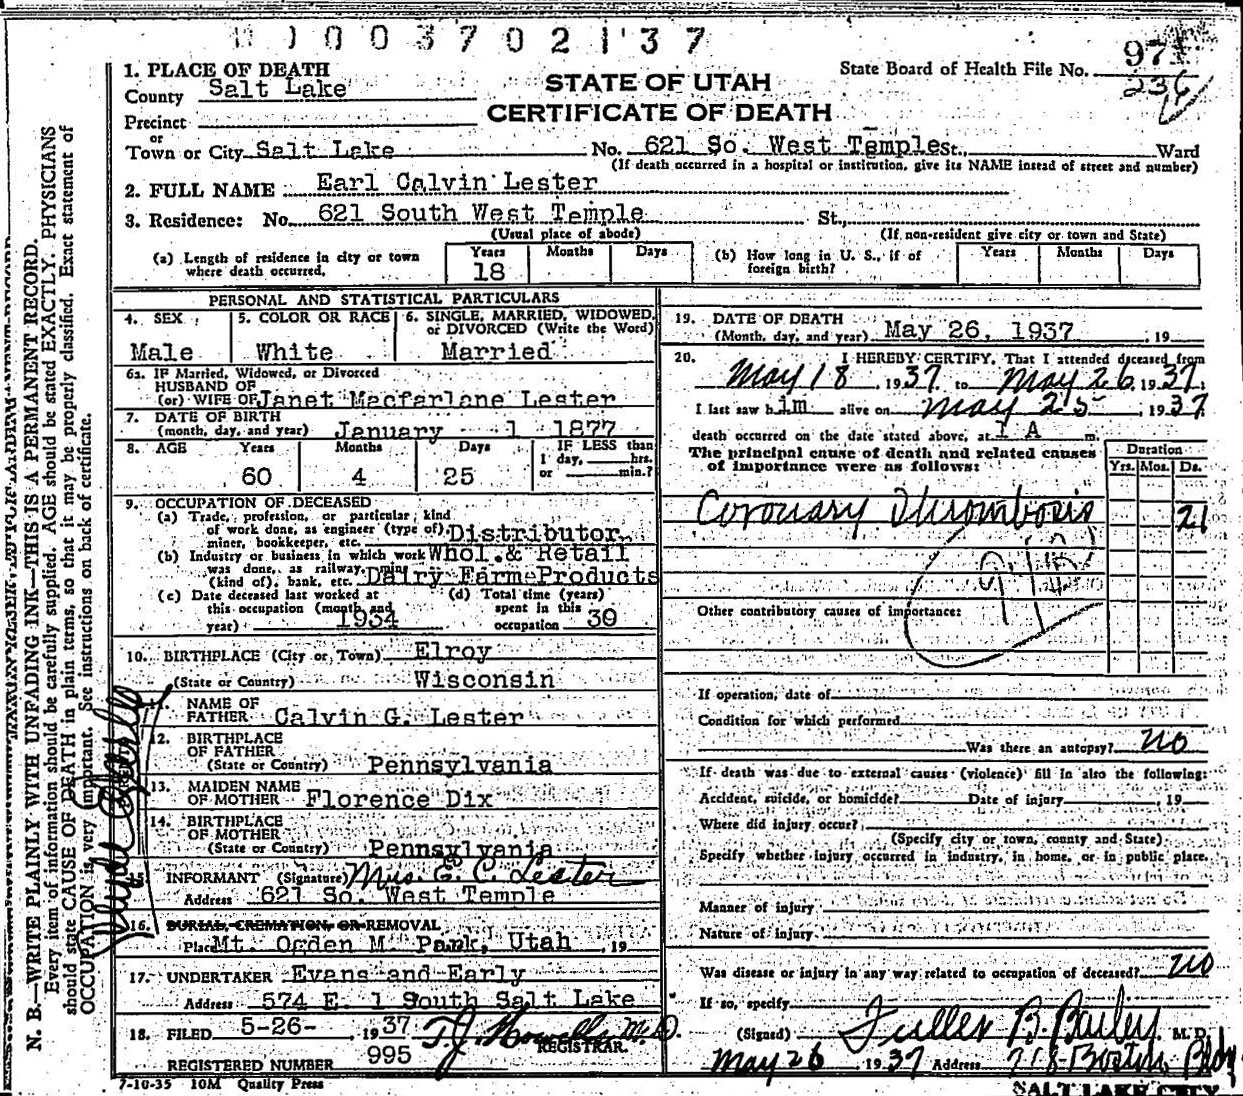 0 0 3 7 0 2 1 3 7
STATE OF UTAH
CERTIFICATE OF DEATH
State Board of Health File No. 971
236
1. PLACE OF DEATH
County Salt Lake
Precinct
or
Town or City Salt Lake No. 621 So. West Temple St., Ward
(If death occurred in a hospital or institution, give its NAME instead of street and number)
2. FULL NAME Earl Calvin Lester
3. Residence: No. 621 South West Temple St.,
(Usual place of abode) (If non-resident give city or town and State)
(a) Length of residence in city or town where death occurred. Years 18 Months Days
(b) How long in U. S., if of foreign birth? Years Months Days
PERSONAL AND STATISTICAL PARTICULARS
4. SEX Male
5. COLOR OR RACE White
6. SINGLE, MARRIED, WIDOWED, or DIVORCED (Write the Word) Married
6a. IF Married, Widowed, or Divorced
HUSBAND OF
(or) WIFE OF Janet Macfarlane Lester
7. DATE OF BIRTH
(month, day, and year) January 1 1877
8. AGE Years 60 Months 4 Days 25 IF LESS than 1 day, hrs. or min.?
9. OCCUPATION OF DECEASED
(a) Trade, profession, or particular kind
of work done, as engineer (type of),
miner, bookkeeper, etc. Distributor
(b) Industry or business in which work Whol. & Retail
was done, as railway, mine
(kind of), bank, etc. Dairy Farm Products
(c) Date deceased last worked at
this occupation (month and
year) 1934
(d) Total time (years)
spent in this
occupation 30
10. BIRTHPLACE (City or Town) Elroy
(State or Country) Wisconsin
11. NAME OF
FATHER Calvin G. Lester
12. BIRTHPLACE
OF FATHER
(State or Country) Pennsylvania
13. MAIDEN NAME
OF MOTHER Florence Dix
14. BIRTHPLACE
OF MOTHER
(State or Country) Pennsylvania
15. INFORMANT (Signature) Mrs. E. C. Lester
Address 621 So. West Temple
16. BURIAL, CREMATION, OR REMOVAL
Place Mt. Ogden M Park, Utah , 19
17. UNDERTAKER Evans and Early
Address 574 E. 1 South Salt Lake
18. FILED 5-26- 1937 T. J. Howells M.D.
REGISTRAR.
REGISTERED NUMBER 995
7-10-35 10M Quality Press
19. DATE OF DEATH
(Month, day, and year) May 26, 1937 , 19
20. I HEREBY CERTIFY, That I attended deceased from
May 18, 1937 to May 26, 1937;
I last saw him alive on May 25 1937
death occurred on the date stated above, at 1 A m.
The principal cause of death and related causes
of importance were as follows:
Duration
Yrs. Mos. Ds.
Coronary Thrombosis 21
94B
Other contributory causes of importance:
If operation, date of
Condition for which performed
Was there an autopsy? no
If death was due to external causes (violence) fill in also the following:
Accident, suicide, or homicide? Date of injury , 19
Where did injury occur?
(Specify city or town, county and State)
Specify whether injury occurred in industry, in home, or in public place.
Manner of injury
Nature of injury
Was disease or injury in any way related to occupation of deceased? no
If so, specify
(Signed) Fuller B. Bailey M. D.
May 26 1937 Address 718 Boston Bldg
SALT LAKE CITY
N. B.—WRITE PLAINLY WITH UNFADING INK—THIS IS A PERMANENT RECORD.
Every item of information should be carefully supplied. AGE should be stated EXACTLY. PHYSICIANS
should state CAUSE OF DEATH in plain terms, so that it may be properly classified. Exact statement of
OCCUPATION is very important. See instructions on back of certificate.